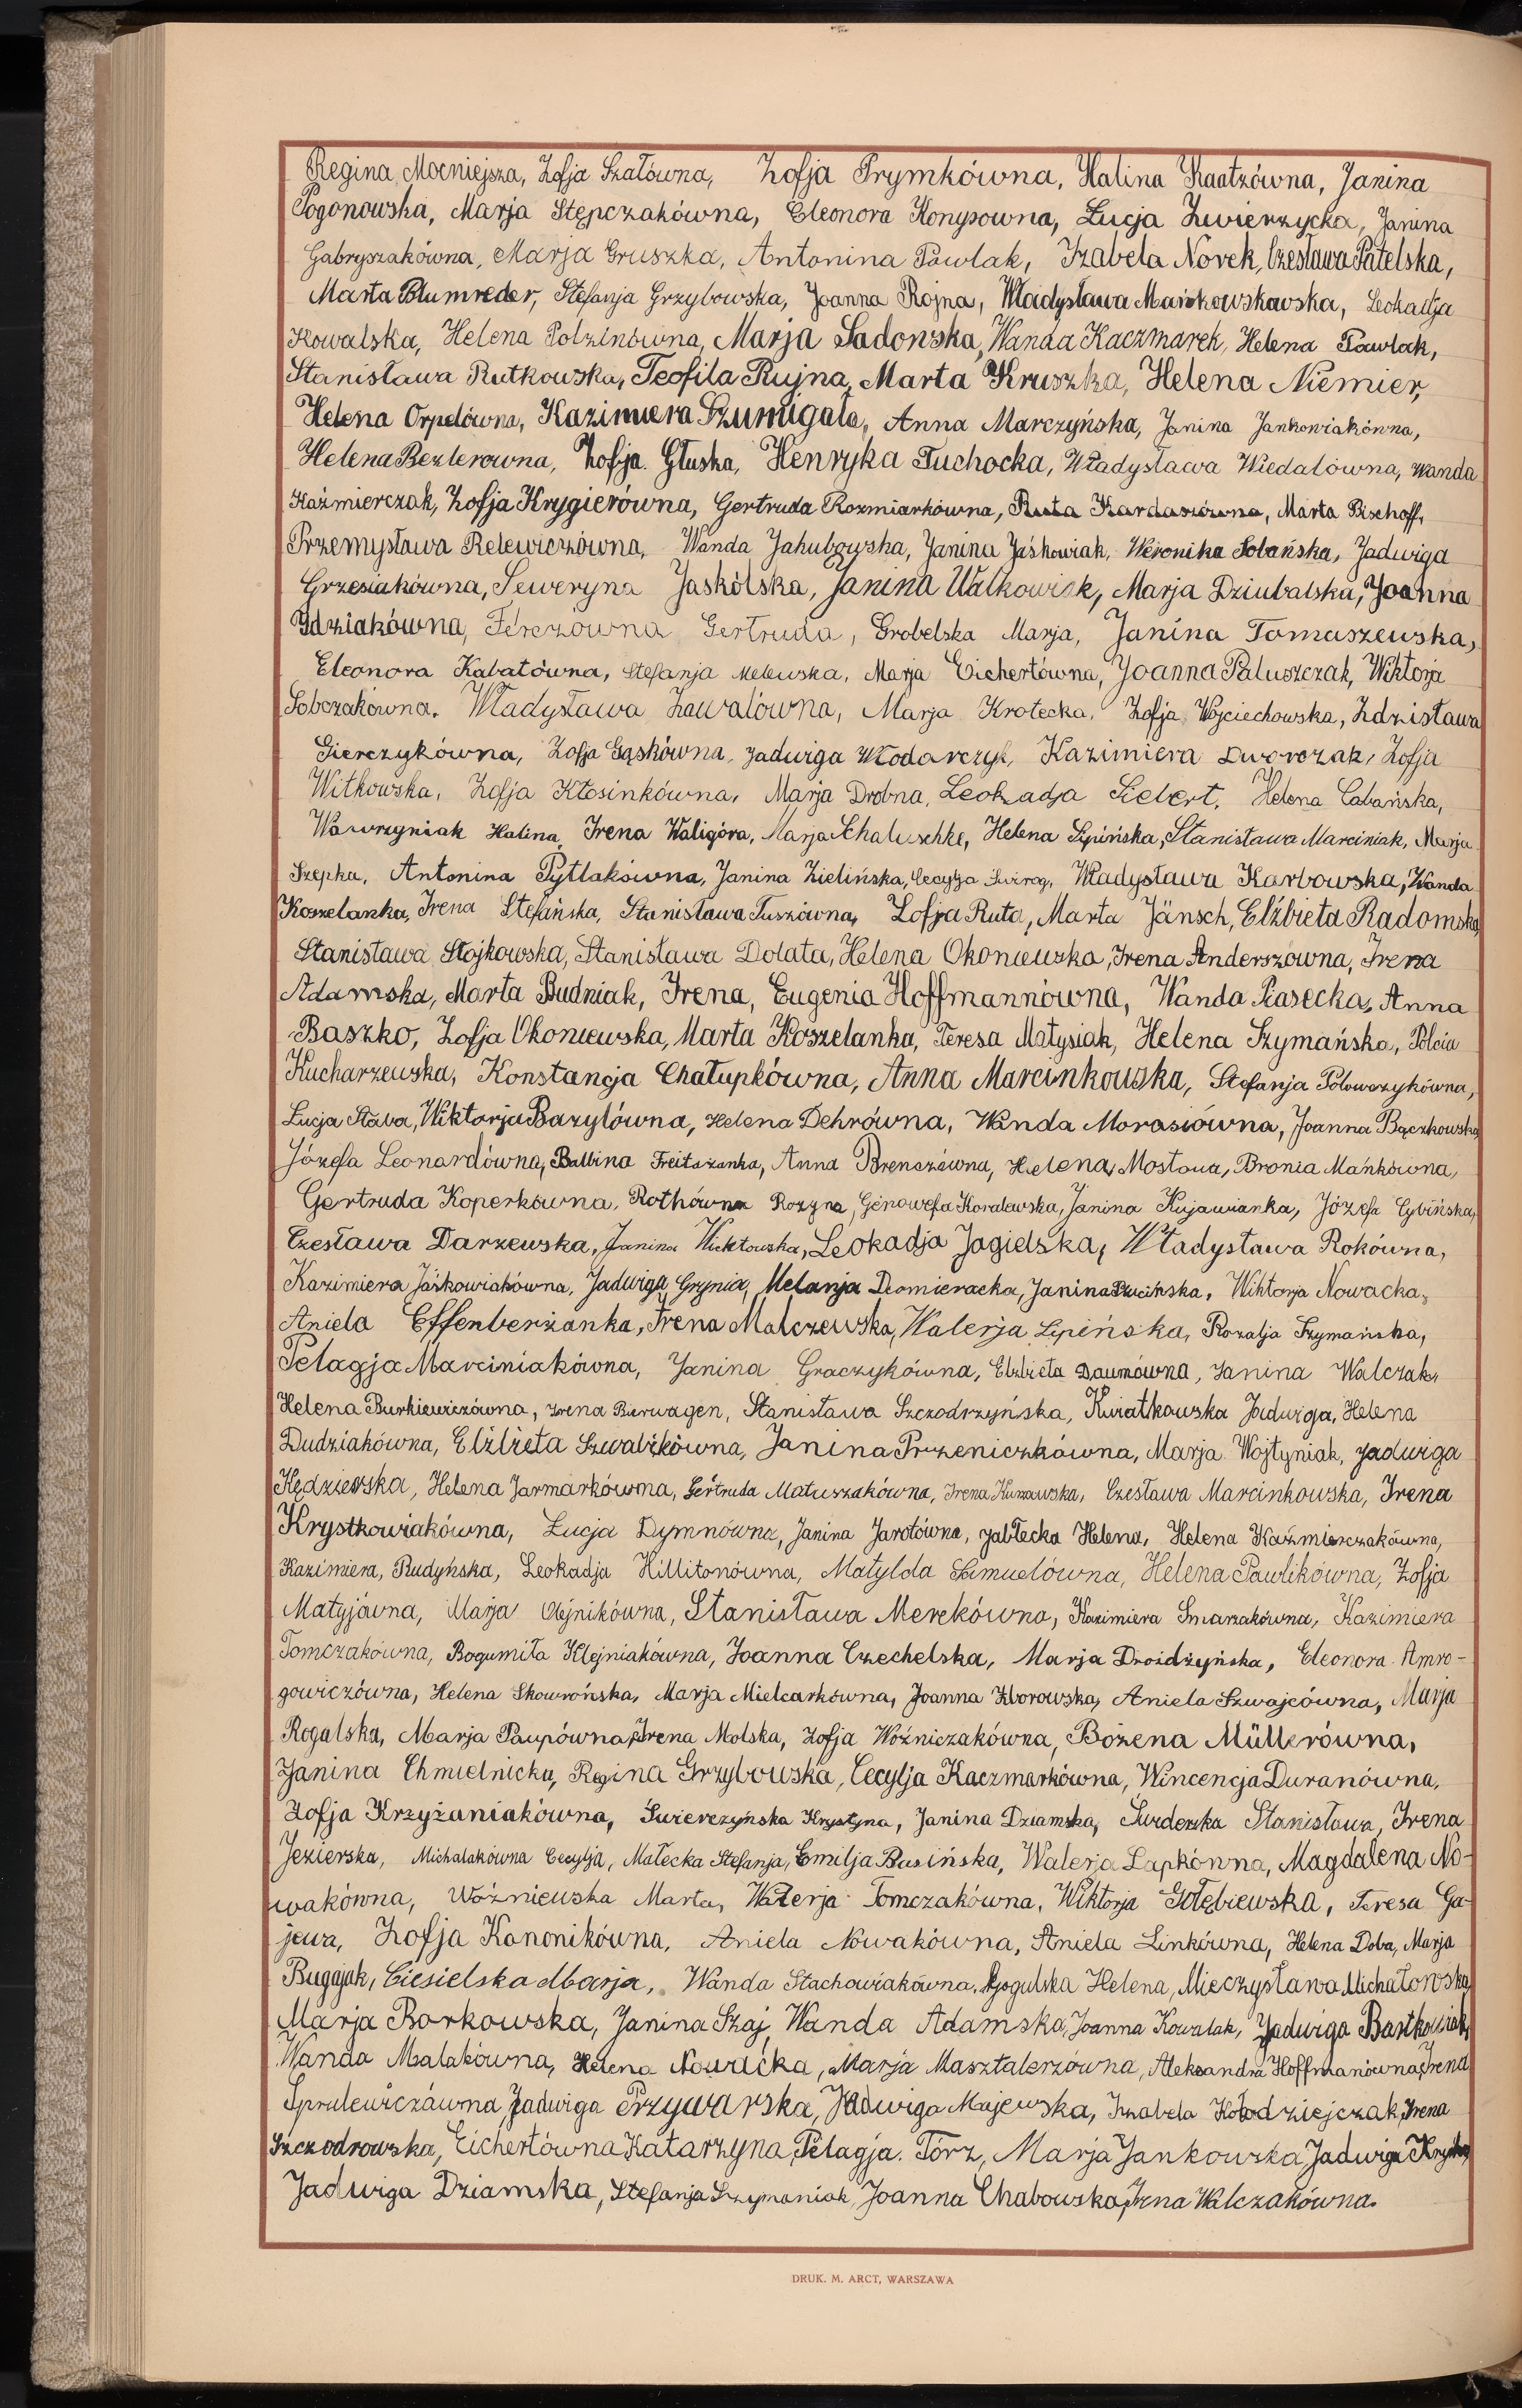 Regina Mocniejsza, Zofja Szałówna, Zofja Prymkówna, Halina Kaatzówna, Janina
Pogonowska, Marja Stępczakówna, Eleonora Konysowna, Łucja Zwierzycka, Janina
Gabryszakówna, Marja Gruszka, Antonina Pawlak, Izabela Novek, Czesława Patelska,
Marta Blumreder, Stefanja Grzybowska, Joanna Rojna, Władysława Leokadja
Kowalska, Helena Polzinówna, Marja Sadowska, Wanda Kaczmarek, Helena Pawlak,
Stanisława Rutkowska, Teofila Rujna, Marta Kruszka, Helena Niemier,
Helena Orpelówna, Kazimiera Szumigała, Anna Marczyńska, Janina Jankowiakówna,
Helena Bezlerowna, Zofja Głuska, Henryka Tuchocka, Władysława Wiedalówna, Wanda
Kaźmierczak, Zofja Krygierówna, Gertruda Rozmiarkówna, Ruta Kardaszówna, Marta Bischoff,
Przemysława Relewiczówna, Wanda Jakubowska, Janina Jaśkowiak, Weronika Solańska, Jadwiga
Grzesiakówna, Seweryna Jaskólska, Janina Walkowiak, Marja Dziubalska, Joanna
Idziakówna, Ferezówna Gertruda, Grobelska Marja, Janina Tomaszewska,
Eleonora Kabatówna, Stefanja Melewska, Marja Eichertówna, Joanna Paluszczak, Wiktorja
Sobczakówna, Władysława Zawalówna, Marja Krotecka, Zofja Wojciechowska, Zdzisława
Gierczykówna, Zofja Gąskówna, Jadwiga Włodarczyk, Kazimiera Dworczak, Zofja
Witkowska, Zofja Kłosinkówna, Marja Drobna, Leokadja Siebert, Helena Cabańska,
Wawrzyniak Halina, Irena Waligóra, Marja Schaluschke, Helena Lipińska, Stanisława Marciniak, Marja
Szepka, Antonina Pytlakówna, Janina Zielińska, Cecylja Władysława Karbowska, Wanda
Koszelanka, Irena Stefańska, Stanisława Tuszówna, Zofja Ruta, Marta Jänsch, Elżbieta Radomska,
Stanisława Stojkowska, Stanisława Dolata, Helena Okoniewska, Irena Anderszówna, Irena
Adamska, Marta Budniak, Irena, Eugenia Hoffmannówna, Wanda Piasecka, Anna
Baszko, Zofja Okoniewska, Marta Koszelanka, Teresa Matysiak, Helena Szymańska, Polcia
Kucharzewska, Konstancja Chałupkówna, Anna Marcinkowska, Stefanja Połowczykówna,
Łucja Staba, Wiktorja Bazylówna, Helena Dehrówna, Wanda Morasiówna, Joanna Bączkowska,
Józefa Leonardówna, Balbina Freitażanka, Anna Brenczówna, Helena Mostowa, Bronia Mańkówna,
Gertruda Koperkówna, Rothówna Rozyna, Genowefa Kowalewska, Janina Kujawianka, Józefa Cybińska,
Czesława Darzewska, Janina Wicktowska, Leokadja Jagielska, Władysława Rokówna,
Kazimiera Jaśkowiakówna, Jadwiga Grynia, Melanja Domieracka, Janina Wiktorja Nowacka,
Aniela Effenberżanka, Irena Malczewska, Walerja Lipińska, Rozalja Szymańska,
Pelagja Marciniakówna, Janina Graczykówna, Elżbieta Daumówna, Janina Walczak,
Helena Burkiewiczówna, Irena Bierwagen, Stanisława Szczodrzyńska, Kwiatkowska Jadwiga, Helena
Dudziakówna, Elżbieta Szwabikówna, Janina Przeniczkówna, Marja Wojtyniak, Jadwiga
Kędzierska, Helena Jarmarkówna, Gertruda Matuszakówna, Irena Kumawska, Czesława Marcinkowska, Irena
Krystkowiakówna, Łucja Dymnówna, Janina Jarotówna, Jabłecka Helena, Helena Kaźmierczakówna,
Kazimiera, Rudyńska, Leokadja Hillitonówna, Matylda Samuelówna, Helena Pawlikówna, Zofja
Matyjówna, Marja Olejnikówna, Stanisława Merekówna, Kazimiera Smarzakówna, Kazimiera
Tomczakówna, Bogumiła Klejniakówna, Joanna Czechelska, Marja Droidżyńska, Eleonora Amro-
gowiczówna, Helena Skowrońska, Marja Mielcarkówna, Joanna Zborowska, Aniela Szwajcówna, Marja
Rogalska, Marja Paupówna, Irena Molska, Zofja Woźniczakówna, Bożena Müllerówna,
Janina Chmielnicka, Regina Grzybowska, Cecylja Kaczmarkówna, Wincencja Duranówna,
Zofja Krzyżaniakówna, Świerczyńska Krystyna, Janina Dziamska, Świderska Stanisława, Irena
Jezierska, Michalakówna Cecylja, Małecka Stefanja, Emilja Busińska, Walerja Łapkówna, Magdalena No-
wakówna, Woźniewska Marta, Walerja Tomczakówna, Wiktorja Gołębiewska, Teresa Ga-
jewa, Zofja Kanonikówna, Aniela Nowakówna, Aniela Linkówna, Helena Doba, Marja
Bugajak, Ciesielska Marja, Wanda Stachowiakówna, Helena, Mieczysława Michałowska,
Marja Borkowska, Janina Szaj, Wanda Adamska, Joanna Kowalak, Jadwiga Bartkowiak,
Wanda Malakówna, Helena Nowicka, Marja Masztalerzówna, Aleksandra Hoffmanówna, Irena
Sprulewiczówna, Jadwiga Przywarska, Jadwiga Majewska, Izabela Kołodziejczak, Irena
Szczodrowska, Eichertówna Katarzyna, Pelagja Törz, Marja Jankowska, Jadwiga
Jadwiga Dziamska, Stefanja Szymaniak, Joanna Chabowska, Irena Walczakówna.
DRUK. M. ARCT, WARSZAWA